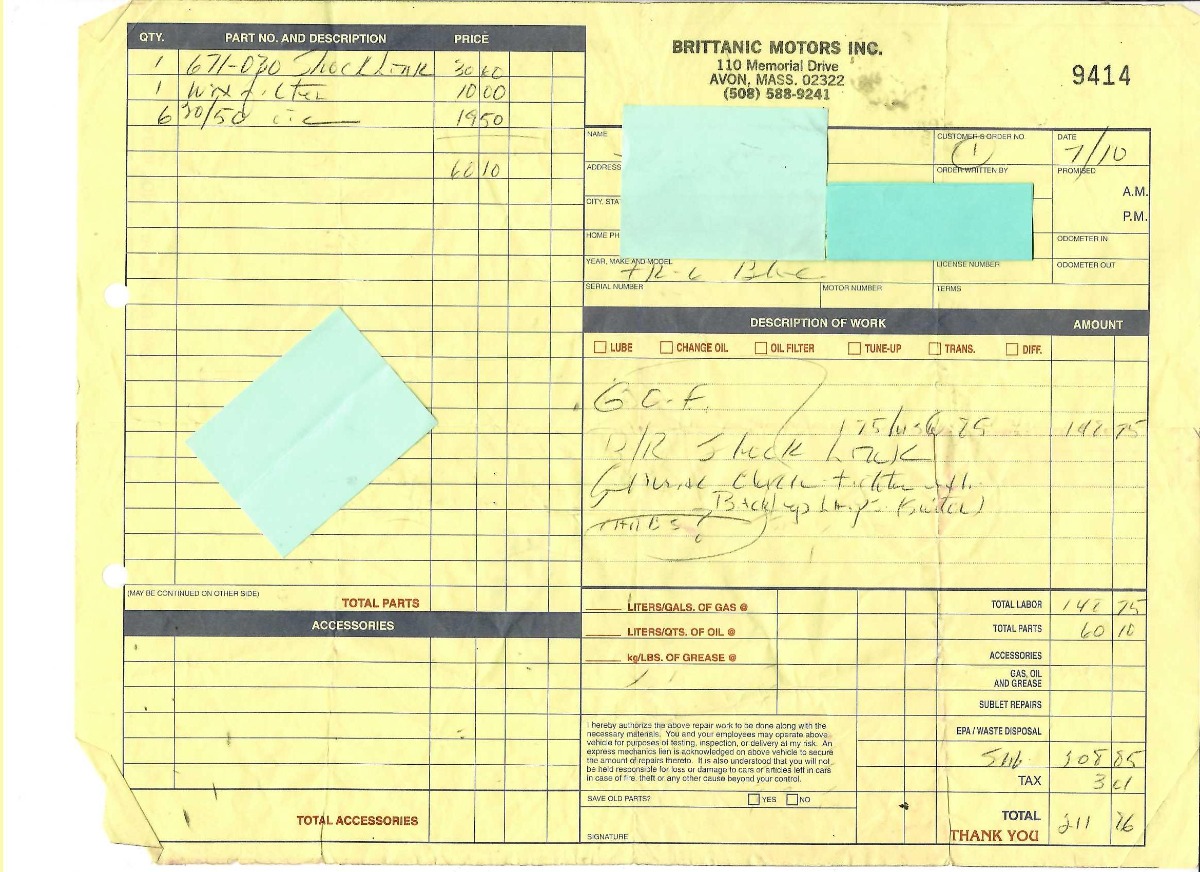 QTY. PART NO. AND DESCRIPTION PRICE
1 671-030 Shock Link 30 60
1 filter 10 00
6 20/50 19 50
60 10
BRITTANIC MOTORS INC.
110 Memorial Drive
AVON, MASS. 02322
(508) 588-9241
9414
NAME
CUSTOMER'S ORDER NO.
1
DATE
7/10
ADDRESS
ORDER WRITTEN BY
PROMISED
A.M.
P.M.
CITY, STA
HOME PH
ODOMETER IN
YEAR, MAKE AND MODEL
TR-6 Blue
LICENSE NUMBER
ODOMETER OUT
SERIAL NUMBER
MOTOR NUMBER
TERMS
DESCRIPTION OF WORK AMOUNT
LUBE CHANGE OIL OIL FILTER TUNE-UP TRANS. DIFF.
G.O.F.
75 75
R/R Shock Link
check tighten
Backup Lamp Switch
(MAY BE CONTINUED ON OTHER SIDE)
TOTAL PARTS
ACCESSORIES
TOTAL ACCESSORIES
LITERS/GALS. OF GAS @
LITERS/QTS. OF OIL @
kg/LBS. OF GREASE @
TOTAL LABOR 148 75
TOTAL PARTS 60 10
ACCESSORIES
GAS, OIL
AND GREASE
SUBLET REPAIRS
EPA / WASTE DISPOSAL
Sub 208 85
TAX 3 01
TOTAL 211 86
THANK YOU
I hereby authorize the above repair work to be done along with the
necessary materials. You and your employees may operate above
vehicle for purposes of testing, inspection, or delivery at my risk. An
express mechanics lien is acknowledged on above vehicle to secure
the amount of repairs thereto. It is also understood that you will not
be held responsible for loss or damage to cars or articles left in cars
in case of fire, theft or any other cause beyond your control.
SAVE OLD PARTS? YES NO
SIGNATURE